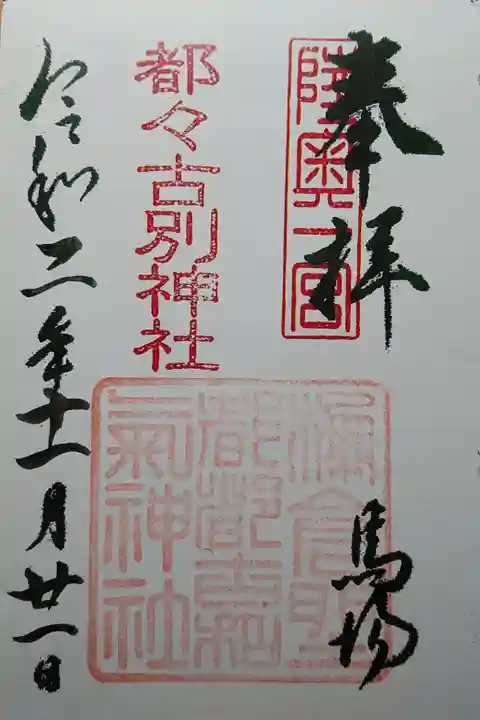 奉拝
陸奥一宮
馬場
都々古別神社
都都古和
氣神社
令和二年十一月廿一日